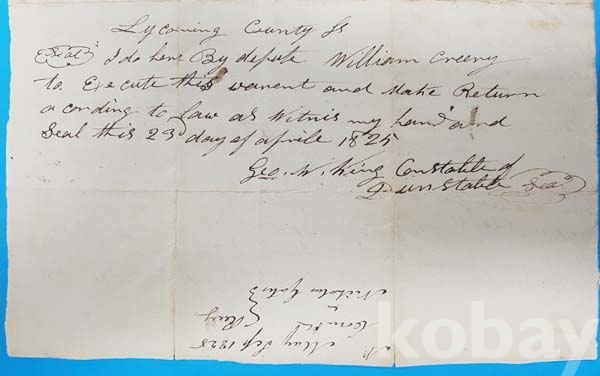 Lycoming County Ss
Seal I do here By depute William Creery
to Execute this warent and Make Return
acording to Law as Witnis my hand and
Seal this 23 day of aprile 1825
Geo. W. King Constable of
Dunstable Seal
Nicholas
1825
kobay